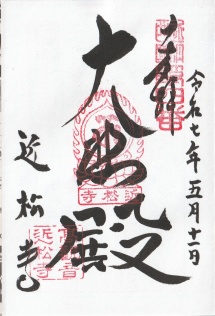 奉拝
大悲殿
令和七年五月十一日
近松寺
近松寺